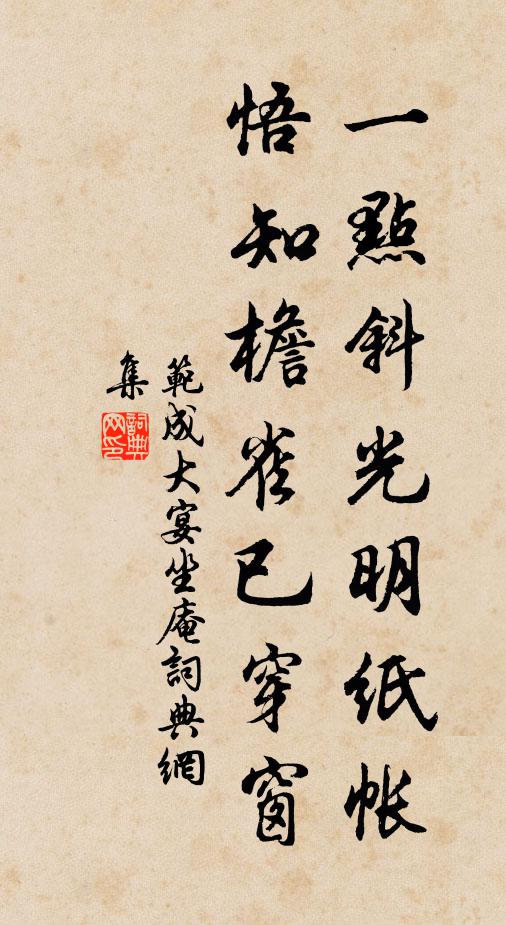 一點斜光明紙帳
悟知檐雀已穿窗
範成大宴坐庵詞典網
集
詞典
网印